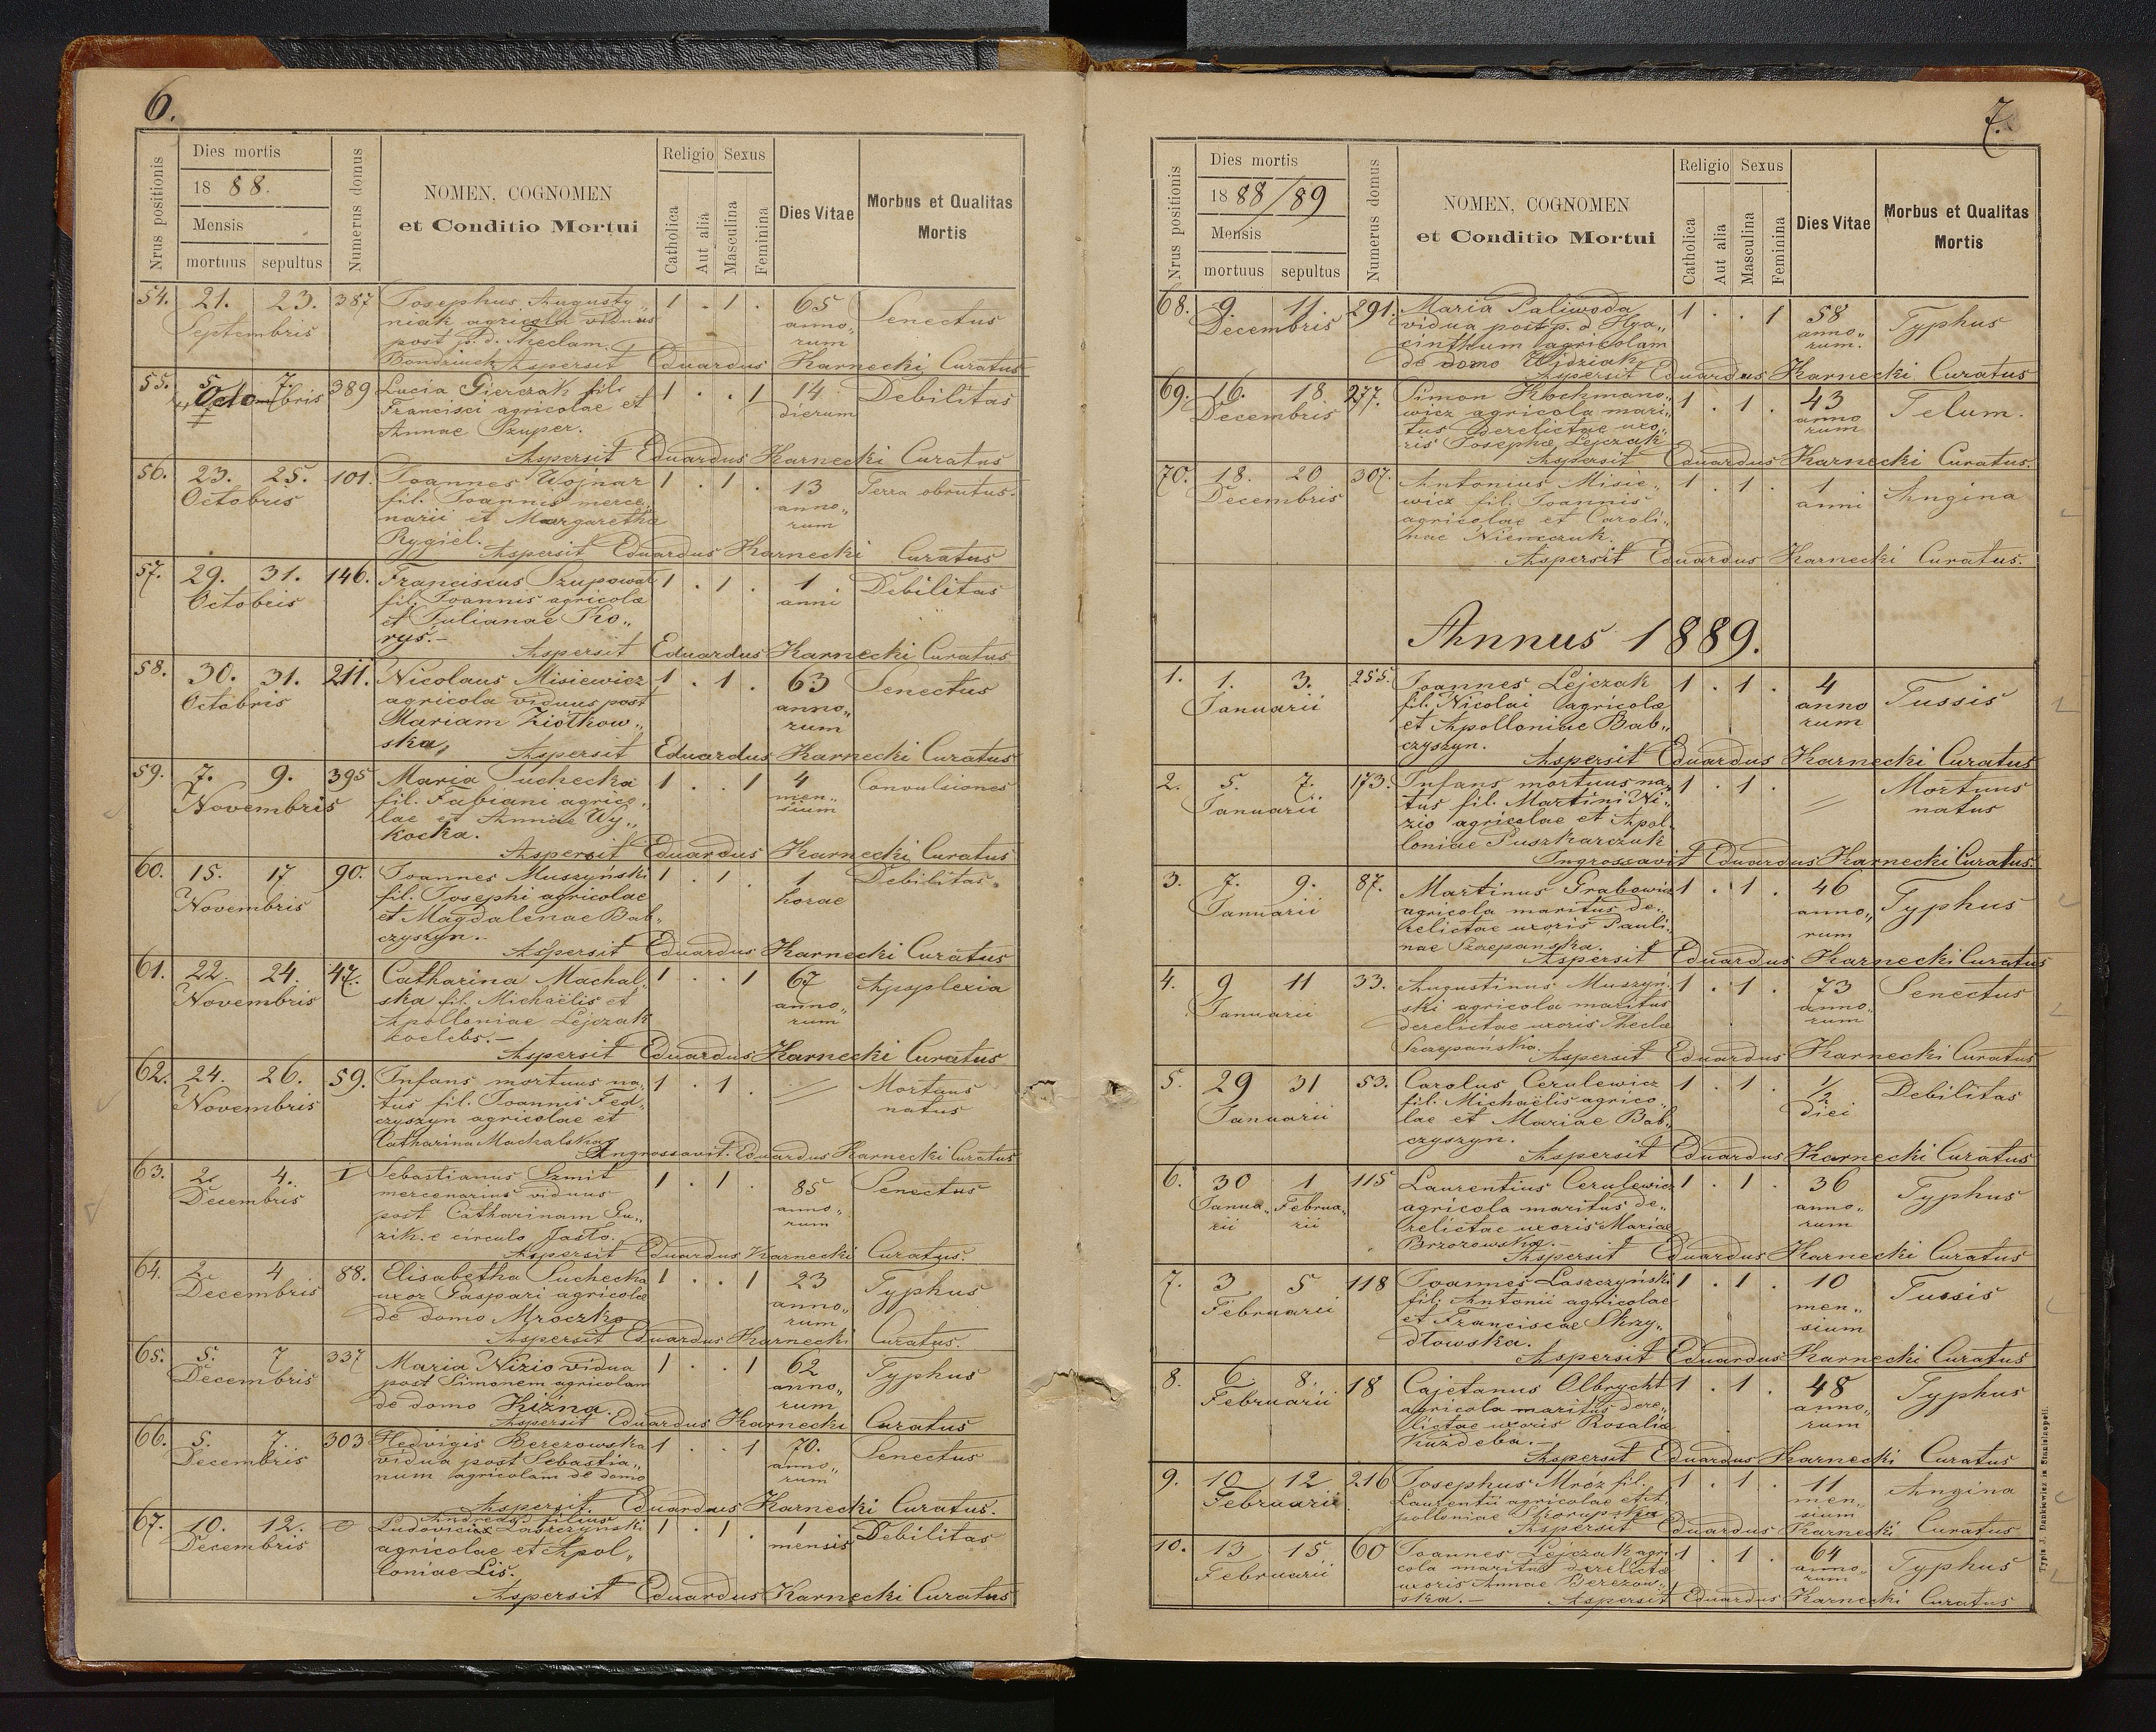 6.
Nrus positionis
Dies mortis
1888.
Mensis
mortuus sepultus
Numerus domus
NOMEN, COGNOMEN
et Conditio Mortui
Religio Sexus
Catholica
Aut alia
Masculina
Feminina
Dies Vitae
Morbus et Qualitas
Mortis
54. 21. 23. 387 Josephus Augusty„ 1 . 1 . 65 Senectus
Septembris niak agricola viduus anno„
post p. d. Theclam rum
Aspersit Eduardus Karnecki Curatus
55. 5. 7. 389 Lucia Gierczak fil. 1 . . 1 14 Debilitas
Octobris Francisci agricolae et dierum
Annae Szuper.
Aspersit Eduardus Karnecki Curatus
56. 23. 25. 101. Joannes Wojnar 1 . 1 . 13 Terra obrutus.
Octobris fil. Joannis merce„ anno„
narii et Margaretha rum
Rygiel. Aspersit Eduardus Karnecki Curatus
57. 29. 31. 146. Franciscus Szupowal 1 . 1 . 1 Debilitas
Octobris fil. Joannis agricolae anni
et Julianae Ko„
ryś.- Aspersit Eduardus Karnecki Curatus
58. 30. 31. 211. Nicolaus Misiewicz 1 . 1 . 63 Senectus
Octobris agricola viduus post anno„
Mariam Ziółkow„ rum
ska, Aspersit Eduardus Karnecki Curatus
59. 7. 9. 395 Maria Suchecka 1 . . 1 4 Convulsiones
Novembris fil. Fabiani agrico„ men„
lae et Annae Wy„ sium
kocka.
Aspersit Eduardus Karnecki Curatus
60. 15. 17 90. Joannes Muszyński 1 . 1 . 1 Debilitas.
Novembris fil. Josephi agricolae horae
et Magdalenae Bab„
czyszyn.-
Aspersit Eduardus Karnecki Curatus
61. 22. 24. 47. Catharina Machal„ 1 . . 1 67 Apoplexia
Novembris ska fil. Michaëlis et anno„
Apolloniae Lejczak rum
coelebs.- Aspersit Eduardus Karnecki Curatus
62. 24. 26. 59. Infans mortuus na„ 1 . 1 . Mortuus
Novembris tus fil. Joannis Fed„ natus
czyszyn agricolae et
Catharina Machalska
Ingrossavit. Eduardus Karnecki Curatus
63. 2. 4. I Sebastianus Szmit 1 . 1 . 85 Senectus
Decembris mercenarius viduus anno„
post Catharinam Gu„ rum
zik. e circulo Jasło.
Aspersit Eduardus Karnecki Curatus.
64. 2 4 88. Elisabetha Suchecka 1 . . 1 23 Typhus
Decembris uxor Gaspari agricolae anno„
de domo Mroczko rum
Aspersit Eduardus Karnecki Curatus.
65. 5. 7 337 Maria Nizio vidua 1 . . 1 62 Typhus
Decembris post Simonem agricolam anno„
de domo Kiźna. rum
Aspersit Eduardus Karnecki Curatus
66. 5. 7. 303 Hedvigis Berezowska 1 . . 1 70. Senectus
Decembris vidua post Sebastia„ anno„
num agricolam de domo rum
Aspersit. Eduardus Karnecki Curatus.
67. 10. 12. Andreas filius
Ludovici Laszczyński 1 . 1 . 1 Debilitas
Decembris agricolae et Apol„ mensis
loniae Lis.
Aspersit Eduardus Karnecki Curatus
7.
Nrus positionis
Dies mortis
1888/89
Mensis
mortuus sepultus
Numerus domus
NOMEN, COGNOMEN
et Conditio Mortui
Religio Sexus
Catholica
Aut alia
Masculina
Feminina
Dies Vitae
Morbus et Qualitas
Mortis
68. 9. 11. 291. Maria Paliwoda 1 . . 1 58 Typhus
Decembris vidua post p. d. Hya„ anno„
cinthum agricolam rum.
de domo Wojdziak
Aspersit Eduardus Karnecki Curatus
69. 16. 18. 277. Simon Kochmano„ 1 . 1 . 43 Telum.
Decembris wicz agricola mari„ anno
tus derelictae uxo„ rum
ris Josephae Lejczak
Aspersit Eduardus Karnecki Curatus.
70. 18. 20 307. Antonius Misie„ 1 . 1 . 1 Angina
Decembris wicz fil. Joannis anni
agricolae et Caroli„
nae Niemczuk.
Aspersit Eduardus Karnecki Curatus.
Annus 1889.
1. 1. 3. 255. Joannes Lejczak 1 . 1 . 4 Tussis
Januarii fil. Nicolai agricolae anno
et Apolloniae Bab„ rum
czyszyn. Aspersit Eduardus Karnecki Curatus
2. 5. 7. 173. Infans mortuus na„ 1 . 1 . Mortuus
Januarii tus fil. Martini Ni„ natus
zio agricolae et Apol„
loniae Puszkarczuk
Ingrossavit Eduardus Karnecki Curatus.
3. 7. 9. 87. Martinus Grabowicz 1 . 1 . 46 Typhus
Januarii agricola maritus de„ anno„
relictae uxoris Pauli„ rum
nae Szczepańska.
Aspersit Eduardus Karnecki Curatus
4. 9 11 33. Augustinus Muszyń„ 1 . 1 . 73 Senectus
Januarii ski agricola maritus anno„
derelictae uxoris Theclae rum
Szczepańska. Aspersit Eduardus Karnecki Curatus
5. 29 31 53. Carolus Cerulewicz 1 . 1 . 1/2 Debilitas
Januarii fil. Michaëlis agrico„ diei
lae et Mariae Bab„
czyszyn. Aspersit Eduardus Karnecki Curatus
6. 30 1 115 Laurentius Cerulewicz 1 . 1 . 36 Typhus
Janua„ Februa„ agricola maritus de„ anno„
rii rii relictae uxoris Mariae rum
Brzozowska.-
Aspersit Eduardus Karnecki Curatus
7. 3 5 118 Joannes Laszczyński 1 . 1 . 10 Tussis
Februarii fil. Antonii agricolae men„
et Franciscae Skrzy„ sium
dłowska.
Aspersit Eduardus Karnecki Curatus
8. 6 8. 18 Cajetanus Olbrycht 1 . 1 . 48 Typhus
Februarii agricola maritus dere„ anno„
lictae uxoris Rosaliae rum
Kuźdeba.-
Aspersit Eduardus Karnecki Curatus
9. 10 12 216 Josephus Mróz fil. 1 . 1 . 11 Angina
Februarii Laurentii agricolae et A„ men„
polloniae Skorupska sium
Aspersit Eduardus Karnecki Curatus
10. 13 15 60 Joannes Lejczak agri„ 1 . 1 . 64 Typhus
Februarii cola maritus derelictae anno„
uxoris Annae Berezow„ rum
ska.- Aspersit Eduardus Karnecki Curatus
Typis J. Dankiewicz in Stanislaopoli.